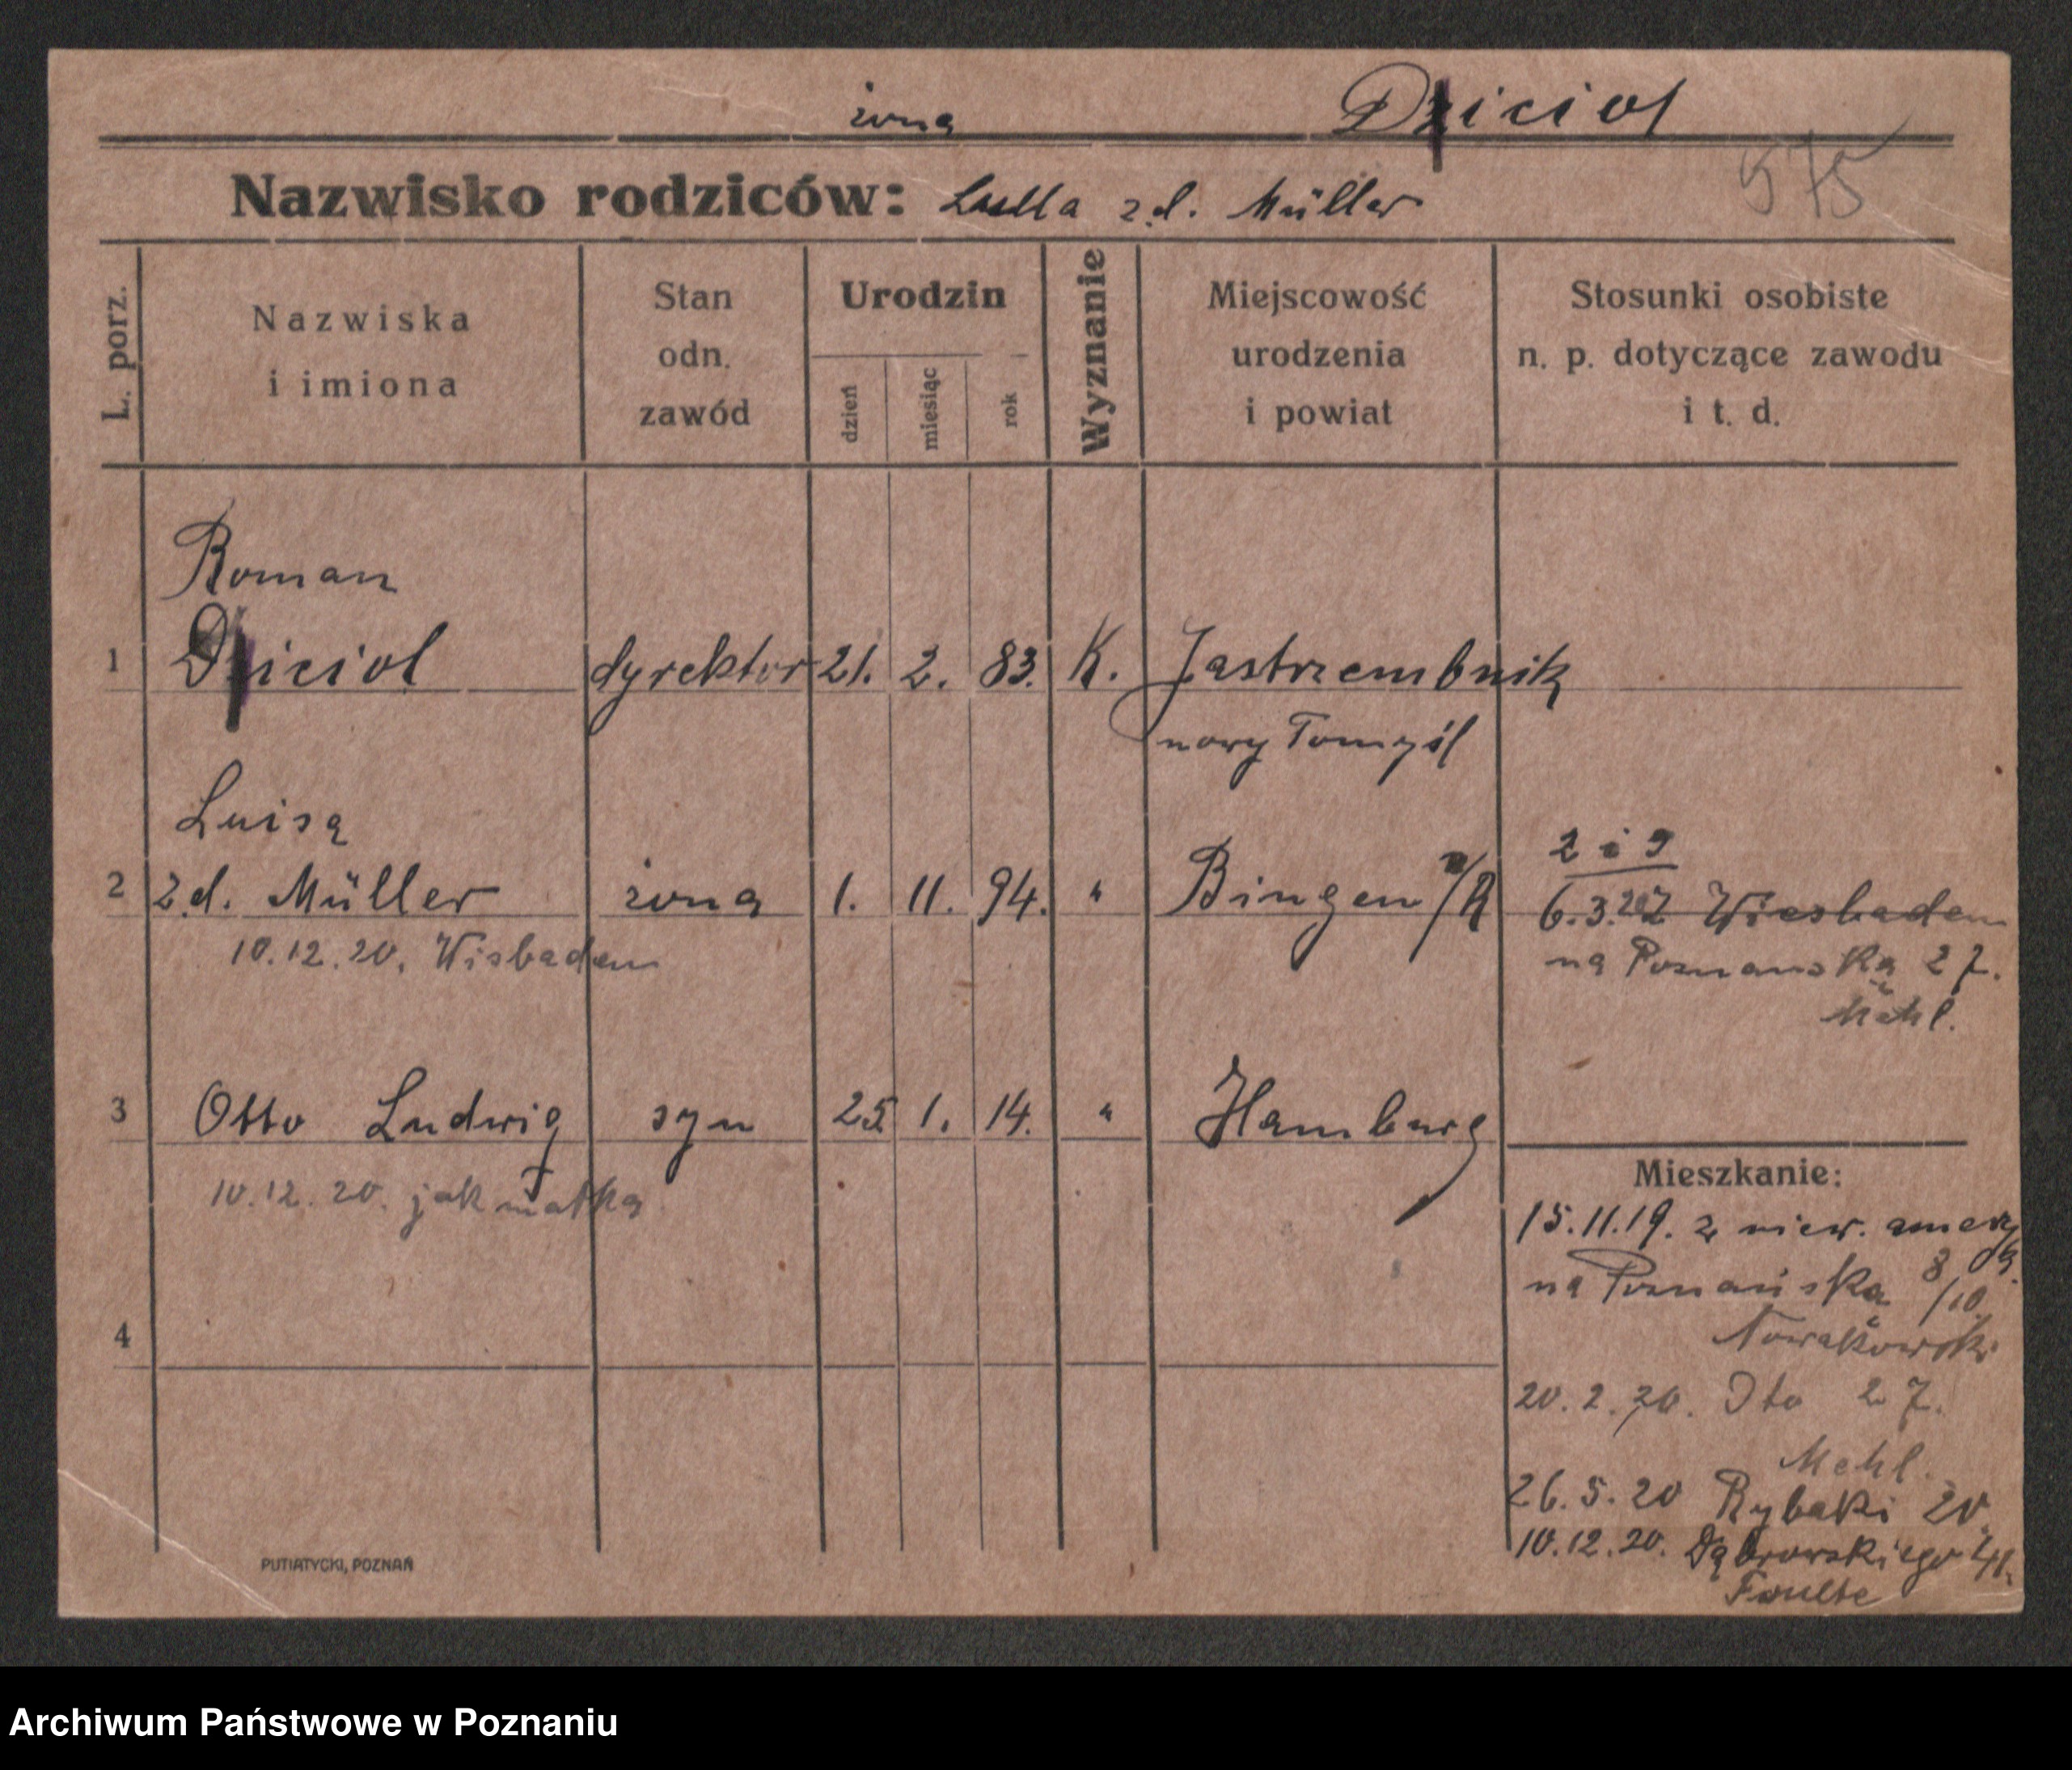 żona Dziciol
575
Nazwisko rodziców: z.d. Müller
L. porz.
Nazwiska
i imiona
Stan
odn.
zawód
Urodzin
dzień
miesiąc
rok
Wyznanie
Miejscowość
urodzenia
i powiat
Stosunki osobiste
n. p. dotyczące zawodu
i t. d.
Roman
1 Dziciol dyrektor 21. 2. 83. K. Jastrzembnik
nowy Tomyśl
Luisa
2 i 3
2 z.d. Müller żona 1. 11. 94. " Bingen /R 6.3.20 z Wiesbaden
10.12.20. Wisbaden
na Poznańska 27.
Mehl.
3 Otto Ludwig syn 25 1. 14. " Hamburg
10.12.20. jak matka
Mieszkanie:
15.11.19. z niew. ameryk.
na Poznańska 8/10
Nowakowski
4
20.2.20. Dto 27.
Mehl.
26.5.20 Rybaki 20
10.12.20. Dąbrowskiego 41.
PUTIATYCKI, POZNAŃ
Archiwum Państwowe w Poznaniu